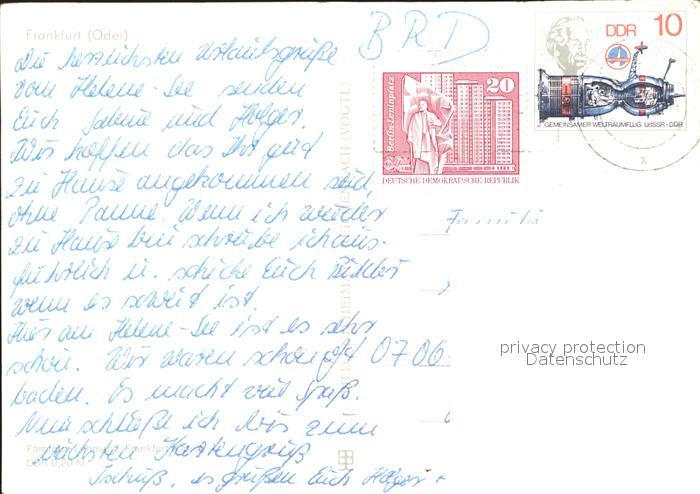 Frankfurt (Oder)
BRD
Die herzlichsten Urlaubsgrüße
vom Helene-See senden
Euch Sabine und Holger.
Wir hoffen das Ihr gut
zu Hause angekommen seid,
ohne Panne. Wenn ich wieder
zu Hause bin schreibe ich aus-
führlich u. schicke Euch Bilder
wenn es soweit ist.
Hier am Helene-See ist es sehr
schön. Wir waren schon oft
baden. Es macht viel Spaß.
Nun schließe ich bis zum
nächsten Kartengruß
Tschüß, es grüßen Euch Holger +
DDR 0,20 M
Berlin-Leninplatz
20
DEUTSCHE DEMOKRATISCHE REPUBLIK
DDR 10
GEMEINSAMER WELTRAUMFLUG UdSSR-DDR
Familie
0706
privacy protection
Datenschutz